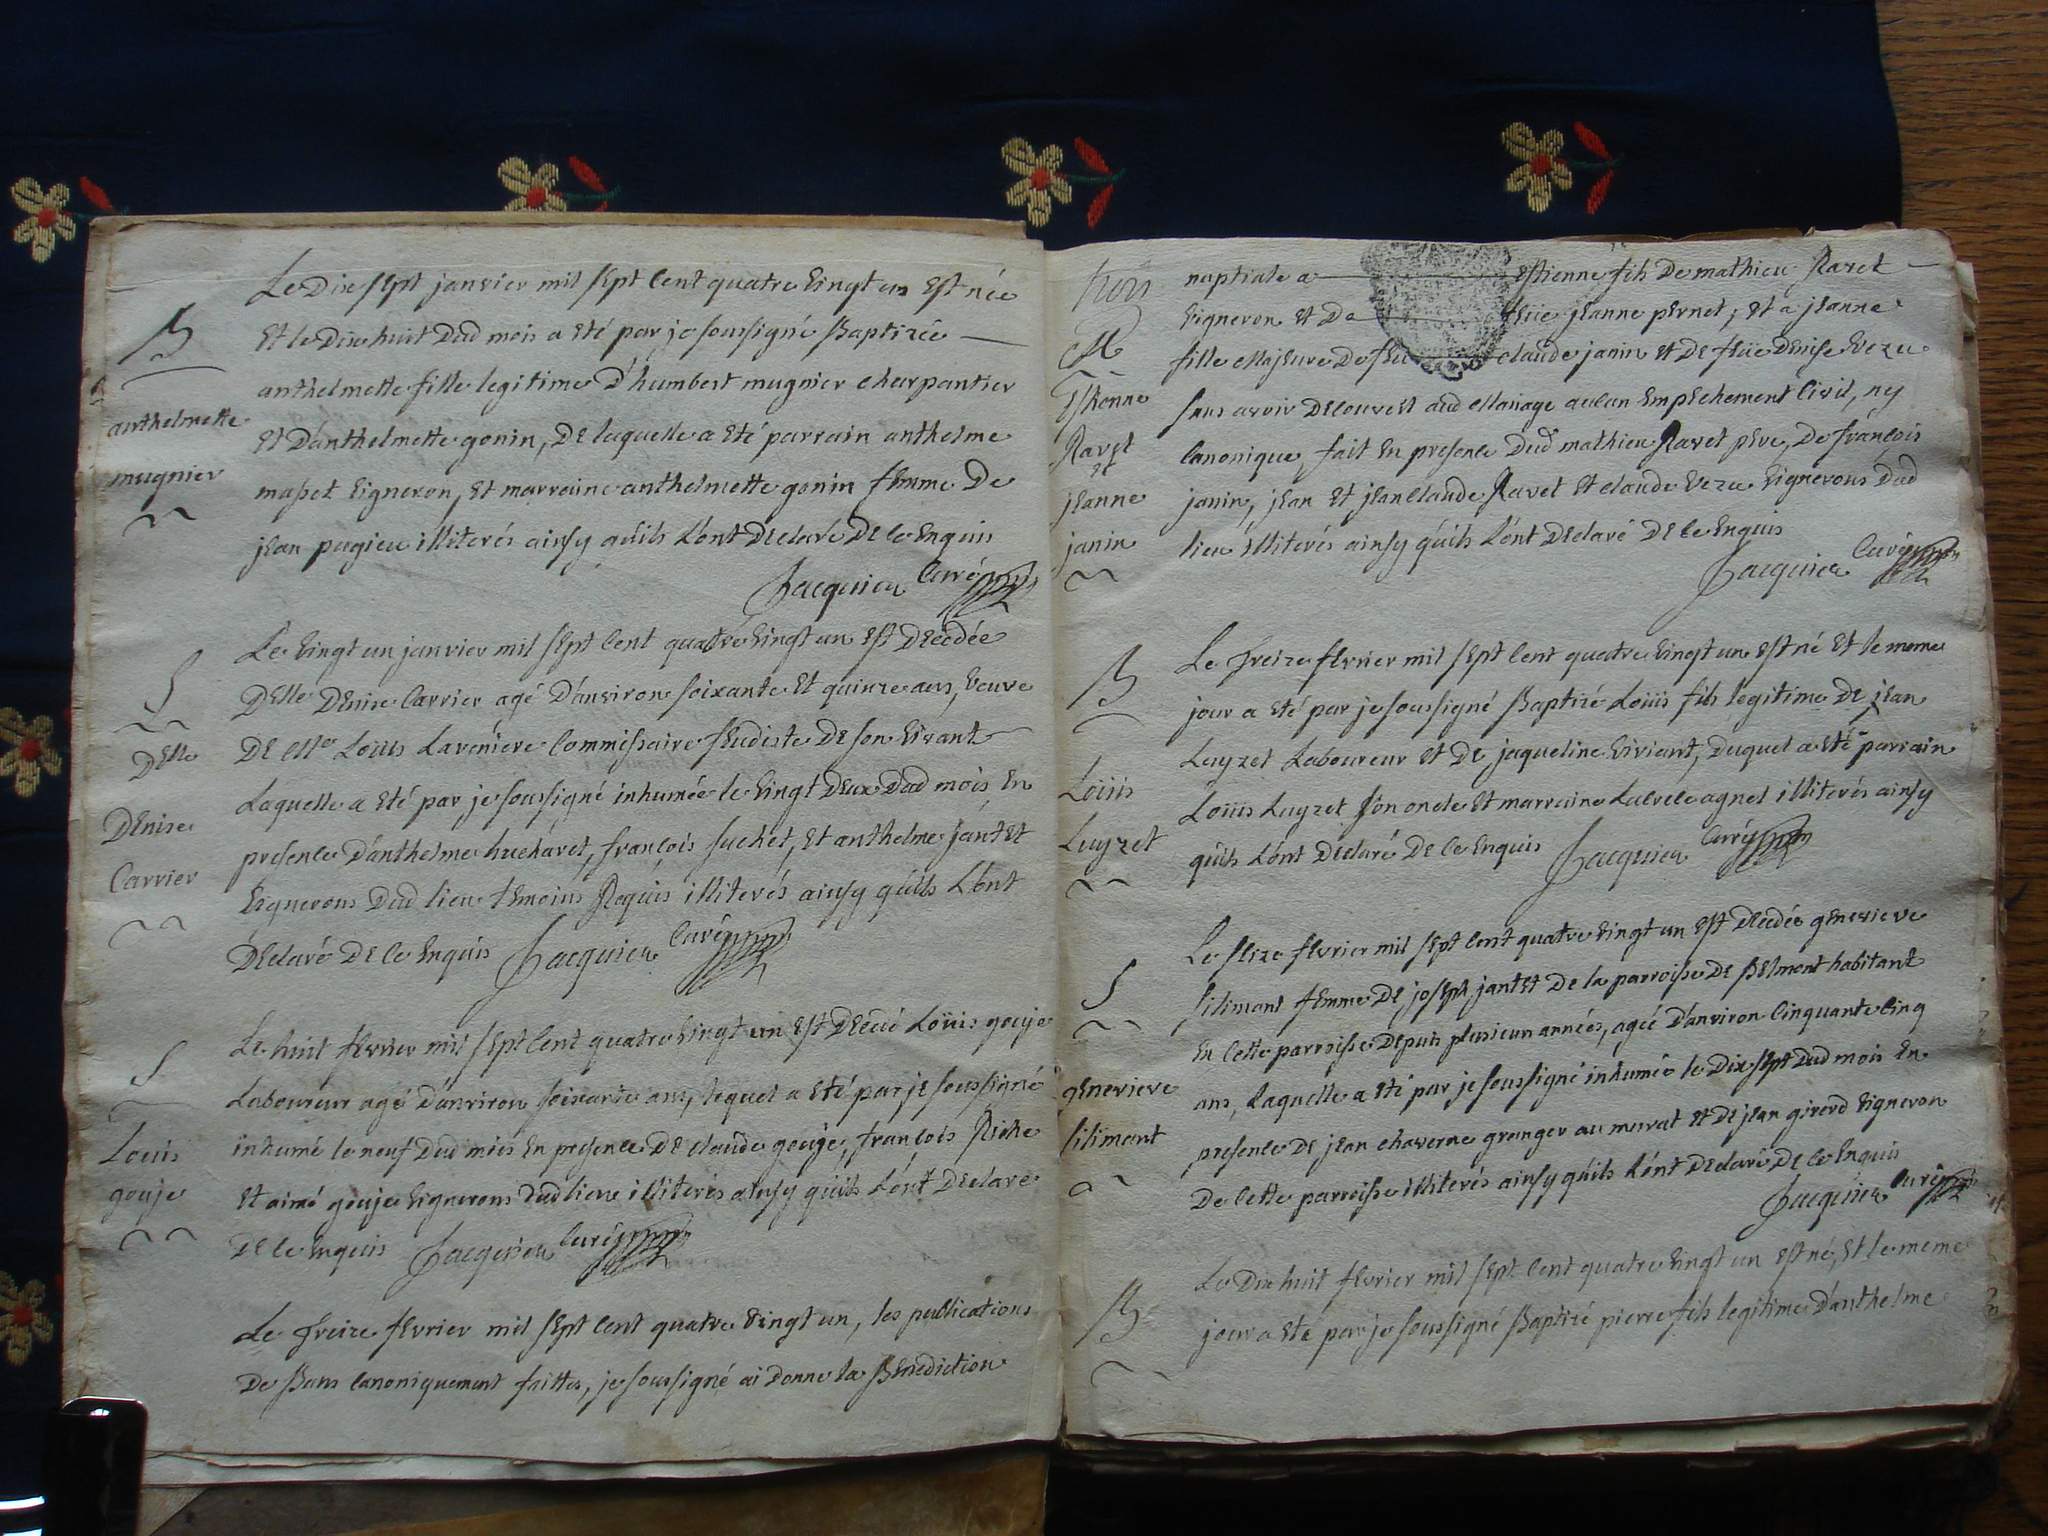 Le Dix sept janvier mil sept Cent quatre vingt un Est née
B
Et le Dix huit Dud mois a Eté par je soussigné Baptizée
anthelmette fille legitime D'humbert mugnier charpantier
anthelmette
Et D'anthelmette gonin, De laquelle a Eté parrain anthelme
mugnier
masset vigneron, Et marraine anthelmette gonin femme De
jean pugieu illiterés ainsy qu'ils L'ont Declaré De ce Enquis
Jacquieu Curé
Le vingt un janvier mil sept Cent quatre vingt un Est Decedée
S
Delle Denise Carrier agé D'anviron soixante Et quinze ans, veuve
Delle
De Mr Loüis Laveniere Commissaire feudiste De son vivant
Laquelle a Eté par je soussigné inhumée le vingt Deux Dud mois, En
Denise
presence D'anthelme huchavet, françois suchet, Et anthelme jantet
Carrier
vignerons Dud lieu temoins Requis illiterés ainsy qu'ils L'ont
Declaré De ce Enquis Jacquieu Curé
Le huit fevrier mil sept Cent quatre vingt un Est Decedé Loüis gouje
S
Laboureur agé D'anviron soixante ans, lequel a Eté par je soussigné
Louis
inhumé le neuf Dud mois En presence De claude gouje, françois Riche
gouje
Et aimé gouje vignerons Dud lieu illiterés ainsy qu'ils L'ont Declaré
De ce Enquis Jacquieu Curé
Le Treize fevrier mil sept Cent quatre vingt un, les publications
De Bans Canoniquement faittes, je soussigné ai Donne la Benediction
trois
nuptiale a Estienne fils De mathieu Ravet
vigneron Et De feüe jeanne pernet; Et a jeanne
M
fille Majeure De feu claude janin Et De feüe Denise vezu
Estienne
sans avoir Decouvert aud Mariage aucun Empechement Civil, ny
Ravet
Canonique, fait En presence Dud mathieu Ravet pere, De françois
et
jeanne
janin, jean Et jean Claude Ravet Et claude vezu vignerons Dud
janin
lieu illiterés ainsy qu'ils L'ont Declaré De ce Enquis
Jacquieu Curé
Le Treize fevrier mil sept Cent quatre vingt un Est né Et le meme
B
jour a Eté par je soussigné Baptizé Loüis fils legitime De jean
Luyzet Laboureur Et De jaqueline viviant, Duquel a Eté parrain
Loüis
Loüis Luyzet son oncle Et marraine agnel illiterés ainsy
Luyzet
qu'ils L'ont Declaré De ce Enquis Jacquieu Curé
Le seize fevrier mil sept Cent quatre vingt un Est Decedée genevieve
S
silimant femme De joseph jantet De la parroisse De Belmont habitant
En Cette parroisse Depuis plusieurs années, agée D'anviron Cinquante Cinq
genevieve
ans, Laquelle a Eté par je soussigné inhumée le Dix sept Dud mois En
silimant
presence De jean chaverne granger au murat Et De jean girerd vigneron
De Cette parroisse illiterés ainsy qu'ils L'ont Declaré De ce Enquis
Jacquieu Curé
Le Dix huit fevrier mil sept Cent quatre vingt un Est né, Et le meme
B
jour a Eté par je soussigné Baptizé pierre fils legitime D'anthelme